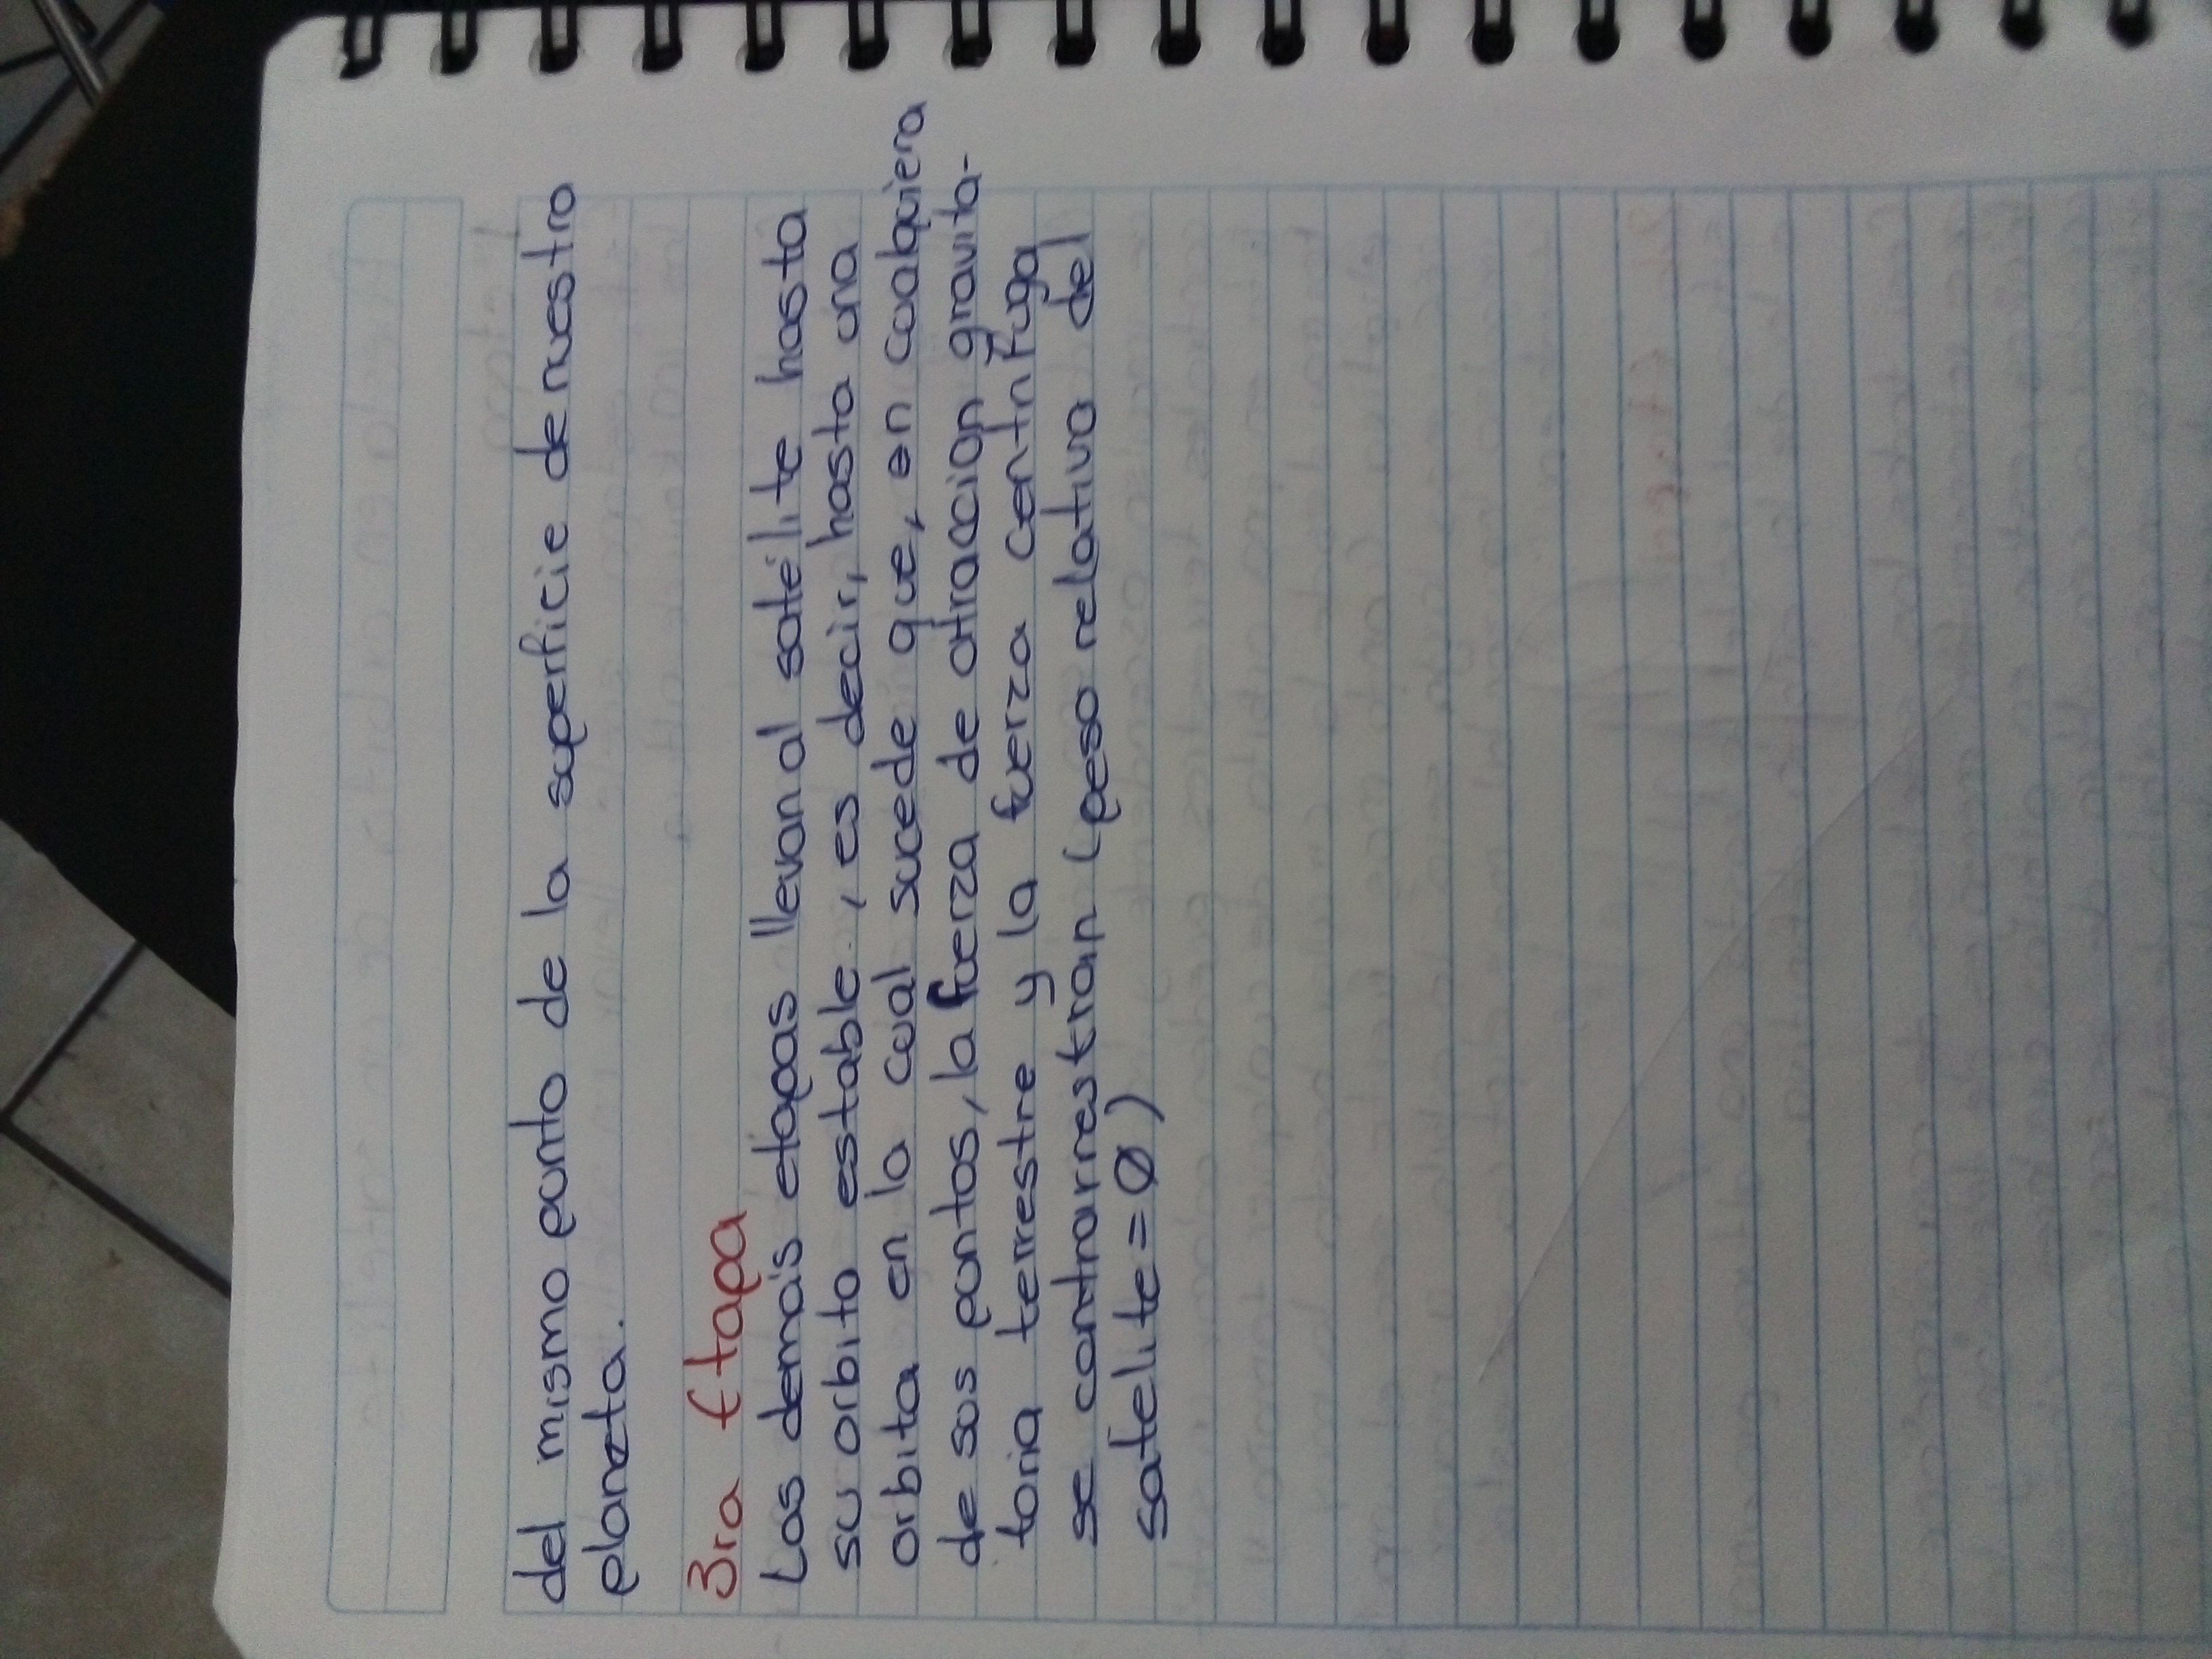 del mismo punto de la superficie de nuestro
planeta.
3ra Etapa
Las demás etapas llevan al satélite hasta
su orbito estable, es decir, hasta una
orbita en la cual sucede que, en cualquiera
de sus puntos, la fuerza de atraccion gravita-
toria terrestre y la fuerza centrifuga
se contrarrestran (peso relativo del
satelite = Ø)